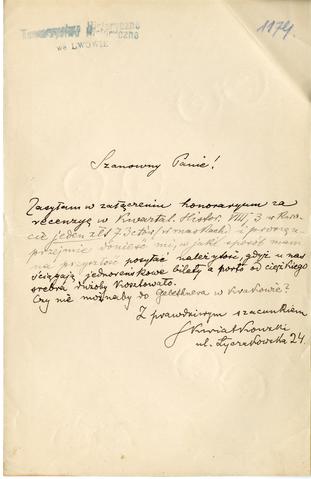 Towarzystwo Historyczne
we LWOWIE
1174.
Szanowny Panie!
Zasyłam w załączeniu honoraryum za
recenzyę w Kwartal. Histor. VIII, 3 w kwo-
cie jeden zł. 73 cts (w markach) i proszę u-
przejmie donieść mi, w jaki sposób mam
na przyszłość posyłać należytość, gdyż u nas
ściągają jednoreńskowe bilety a porto od ciężkiego
srebra dużoby kosztowało.
Czy nie możnaby do Gebethnera w Krakowie?
Z prawdziwym szacunkiem
S Kwiatkowski
ul. Łyczakowska 24.